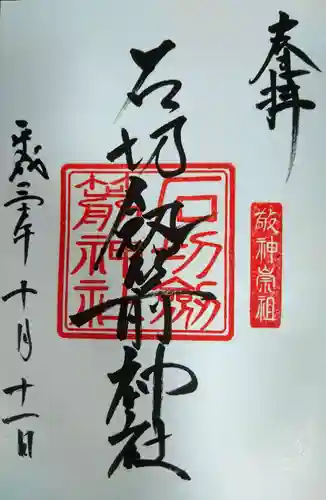 奉拝
敬神崇祖
石切劔箭神社
石切劔箭神社
平成二十年十月十一日